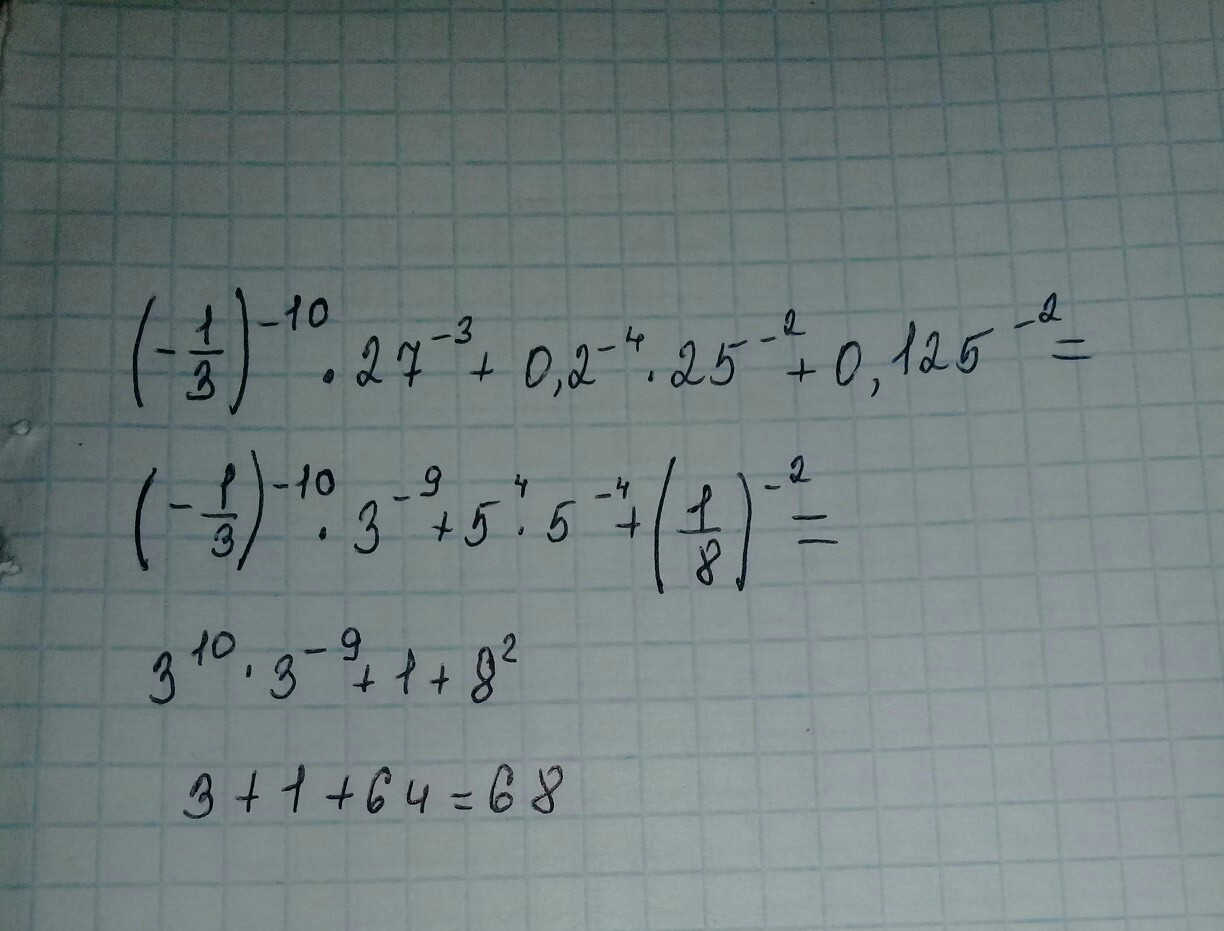 (-1/3)^-10 · 27^-3 + 0,2^-4 · 25^-2 + 0,125^-2 =
(-1/3)^-10 · 3^-9 + 5^4 · 5^-4 + (1/8)^-2 =
3^10 · 3^-9 + 1 + 8^2
3 + 1 + 64 = 68